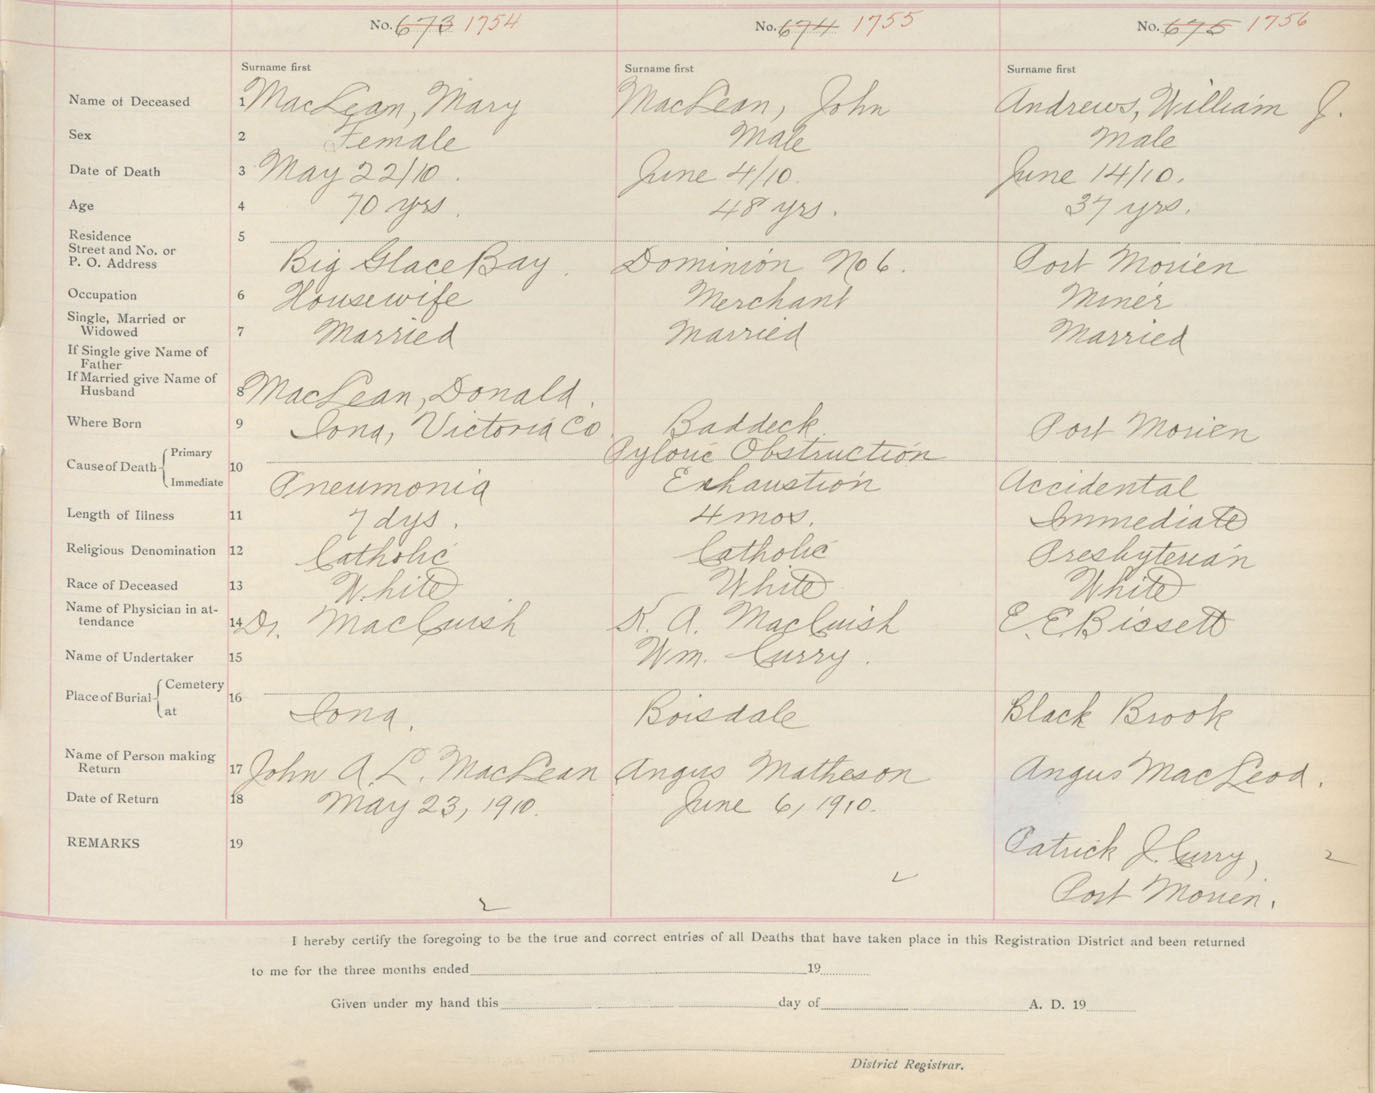 No. 673 1754 No. 674 1755 No. 675 1756
Surname first Surname first Surname first
Name of Deceased 1 MacLean, Mary MacLean, John Andrews, William J.
Sex 2 Female Male Male
Date of Death 3 May 22/10. June 4/10. June 14/10.
Age 4 70 yrs. 48 yrs. 37 yrs.
Residence 5
Street and No. or
P. O. Address Big Glace Bay. Dominion No 6. Port Morien
Occupation 6 Housewife Merchant Miner
Single, Married or
Widowed 7 Married Married Married
If Single give Name of
Father
If Married give Name of
Husband 8 MacLean, Donald.
Where Born 9 Iona, Victoria Co. Baddeck Port Morien
Cause of Death Primary 10 Pyloric Obstruction
Immediate Pneumonia Exhaustion Accidental
Length of Illness 11 7 dys. 4 mos. Immediate
Religious Denomination 12 Catholic Catholic Presbyterian
Race of Deceased 13 White White White
Name of Physician in at-
tendance 14 Dr. MacCuish K. A. MacCuish E. E Bissett
Name of Undertaker 15 Wm. Curry.
Place of Burial Cemetery 16
at Iona. Boisdale Black Brook
Name of Person making
Return 17 John A. L. MacLean Angus Matheson Angus MacLeod.
Date of Return 18 May 23, 1910. June 6, 1910.
REMARKS 19 Patrick J. Curry,
Port Morien.
I hereby certify the foregoing to be the true and correct entries of all Deaths that have taken place in this Registration District and been returned
to me for the three months ended 19
Given under my hand this day of A. D. 19
District Registrar.